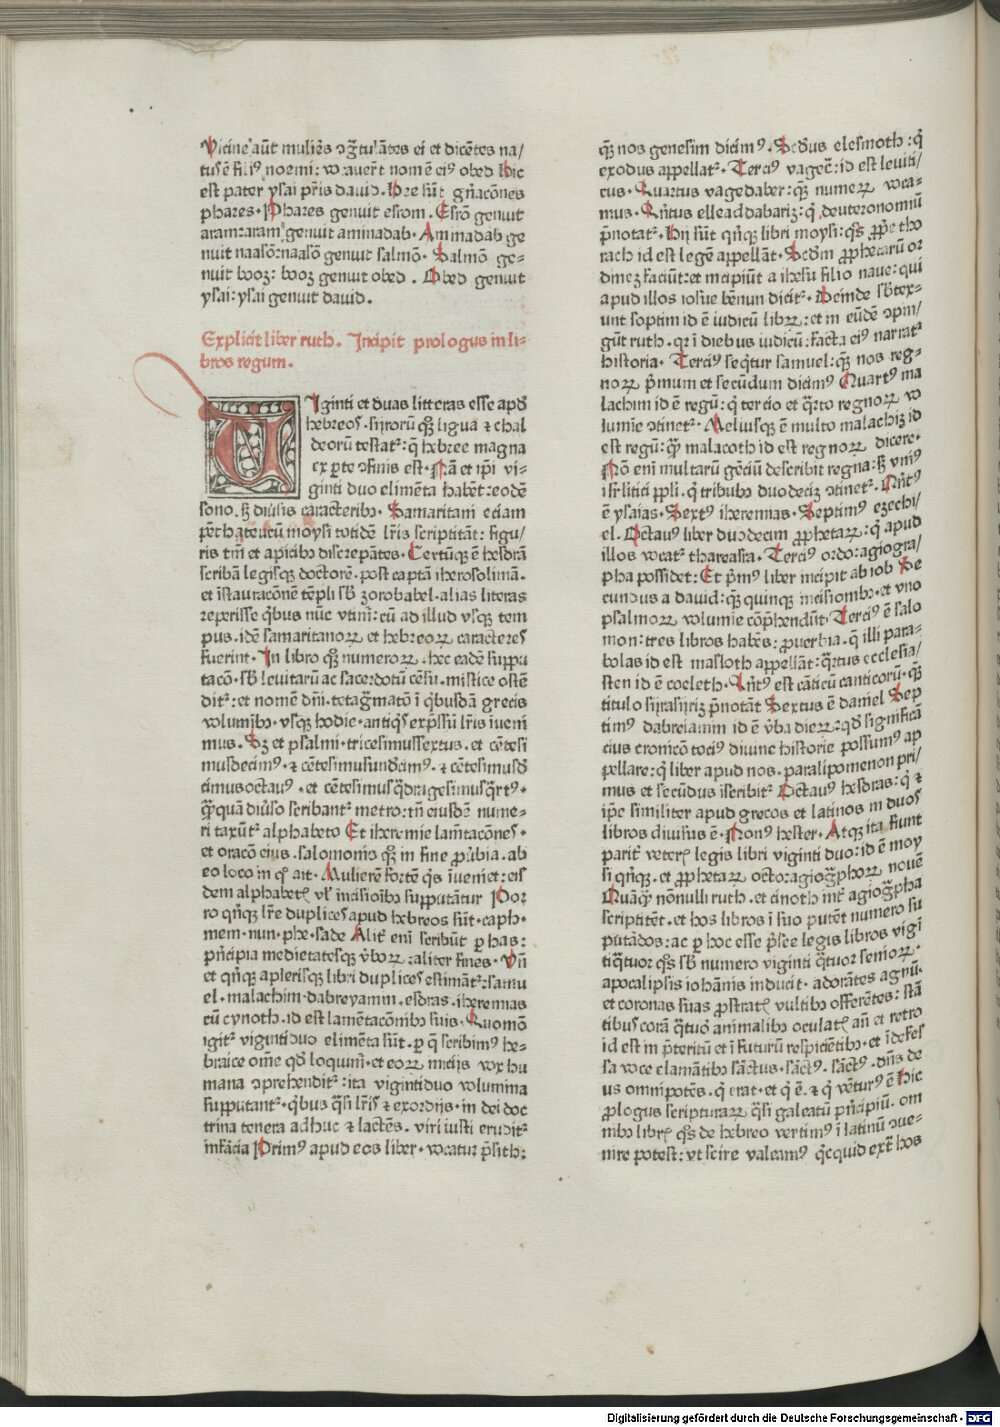 Vicine aūt mulieꝛs ꝯg̃tulātes ei et dicētes na/
tus ē filiꝯ noemi: vocauer̄t nomē eiꝯ obed Hic
est pater ysai p̄ris dauid. Hee sūt gn̄acōnes
phares. Phares genuit esrom. Esrō genuit
aram: aram genuit aminadab. Aminadab ge
nuit naasō: naasō genuit salmō. Salmō ge⸗
nuit booz: booz genuit obed. Obed genuit
ysai: ysai genuit dauid.
Explicit liber ruth. Incipit prologus in li⸗
bros regum.
VIginti et duas litteras esse apd̄
hebreos. siroꝛū qꝫ ligua ⁊ chal
deoꝛū testatᷣ: q̄ hebree magna
ex ꝑte ꝯfinis est. Nā et ip̄i vi⸗
ginti duo elimēta habēt: eodē
sono. sꝫ diuisis caracteribꝯ. Samaritani etiam
pēthateucū moysi totidē lr̄is scriptitāt: figu⸗
ris tm̄ et apicibꝯ discrepātes. Certūqꝫ ē hesdrā
scribā legisqꝫ doctorē. post captā iherosolimā.
et istauracōnē tēpli sb̄ zorobabel. alias literas
reperisse q̄bus nūc vtimᷣ: cū ad illud vsqꝫ tem
pus. idē samaritanoꝝ et hebreoꝝ caracteres
fuerint. In libro qꝫ numeroꝝ. hec eadē suppu
tacō. sb̄ leuitarū ac sacerdotū cēsu. mistice ostē
ditᷣ: et nomē dn̄i. tetag̃matō i q̄busdā grecis
volumibꝯ. vsqꝫ hodie. antiq̄s exp̄ssū lr̄is iueni
mus. Sꝫ et psalmi. tricesimussextus. et cētesi
musdecimꝯ. ⁊ cētesimusundecimꝯ. ⁊ cētesimusd̄
cimus octauꝯ. et cētesimusq̄dragesimusq̄rtꝯ.
q̄ꝫquā diūso scribantᷣ metro: tn̄ eiusdē nume⸗
ri taxūtᷣ alphabeto Et iheremie lam̄tacōnes.
et oracō eius. salomonis qꝫ in fine ꝓubia. ab
eo loco in qͦ ait. Mulierē fortē q̄s iueniet: eis
dem alphabetꝭ vl̓ incisioībꝯ supputātur Por
ro qn̄qꝫ lr̄e duplices apud hebreos sūt. caph.
mem. nun. phe. sade Alitᷣ eni scribūt ꝑ has:
p̄ncipia medietatesqꝫ v̄boꝝ: aliter fines. Vn̄
et qn̄qꝫ aplerisqꝫ libri duplices estimātᷣ: samu
el. malachim. dabreyamin. esdras. iheremias
cū cynoth. id est lamētacōnibꝯ suis. Quomō
igitᷣ viginti duo elimēta sūt. ꝑ q̄ scribimꝯ he⸗
braice om̄e qd̄ loquimᷣ. et eoꝝ inicijs vox hu
mana ꝯprehenditᷣ: ita viginti duo volumina
supputantᷣ. q̄bus q̄si lr̄is ⁊ exordijs. in dei doc
trina tenera adhuc ⁊ lactēs. viri iusti eruditᷣ
infācia Primꝯ apud eos liber. vocatur p̄sith:
quē nos genesim dicimꝯ. Scd̄us elesmoth: q̄
exodus appellatᷣ. Terciꝯ vagec̄: id est leuiti⸗
cus. Quartus vagedaber: quē numeꝝ voca⸗
mus. Qn̄tus elleaddabariꝫ: q̄ deuteronomiū
p̄notatᷣ. Hij sūt qn̄qꝫ libri moysi: q̄s ꝓp̄e tho
rach id est legē appellāt. Scd̄m ꝓphetarū or
dinez faciūt: et incipiūt a ihesu filio naue: qui
apud illos iosue bēnun dicitᷣ. Deinde sb̄tex⸗
unt soptim id ē iudicū libꝝ: et in eūdē ꝯpin/
gūt ruth. qꝛ i diebus iudicū: facta eiꝯ narratᷣ
historia. Terciꝯ seq̄tur samuel: quē nos reg⸗
noꝝ p̄mum et secūdum dicimꝯ Quartꝯ ma
lachim id ē regū: q̄ tercio et q̄rto regnoꝝ vo
lumie ꝯtinetᷣ. Meliusqꝫ ē multo malachiꝫ id
est regū: q̄ꝫ malacoth id est regnoꝝ dicere.
Nō eni multarū gēciū describit regna: sꝫ vniꝯ
isrlitici ppli. q̄ tribubꝯ duodeciꝫ ꝯtinetᷣ. Qn̄tꝯ
ē ysaias. Sextꝯ iheremias. Septimꝯ ezechi⸗
el. Octauꝯ liber duodecim ꝓphetaꝝ: q̄ apud
illos vocatᷣ thareasra. Tercius ordo: agiogra/
pha possidet: Et p̄mꝯ liber incipit ab iob Se
cundus a dauid: quē quinque incisiombꝯ. et vno
psalmoꝝ volumie cōp̄hendūt. Terciꝯ ē salo
mon: tres libros habēs: ꝓuerbia. q̄ illi para⸗
bolas id est masloth appellāt: q̄rtus ecclesia/
sten id ē coeleth. Qn̄tꝯ est cāticū canticorū. quē
titulo sirasiriꝫ p̄notāt Sextus ē daniel Sep
timꝯ dabreiamin id ē v̄ba dieꝝ: qd̄ significā
cius cronicō tociꝯ diuine historie possumꝯ ap
pellare: q̄ liber apud nos. paralipomenon pri/
mus et secūdus iscribitᷣ Octauꝯ hesdras: q̄ ⁊
ip̄e similiter apud grecos et latinos in duos
libros diuisus ē. Nonꝯ hester. Atqꝫ ita fiunt
paritᷣ veterꝭ legis libri viginti duo: id ē moy
si qn̄qꝫ. et ꝓphetaꝝ octo: agiog̃phoꝝ nouē
Quāq̄ꝫ nōnulli ruth. et cinoth int̄ agiog̃pha
scriptitēt. et hos libros i suo putēt numero su
putādos: ac ꝑ hoc esse p̄sce legis libros vigi
tiq̄tuor q̄s sb̄ numero viginti q̄tuor senioꝝ.
apocalipsis iohānis inducit. adorātes agnū.
et coronas suas ꝓstratꝭ vultibꝯ offerētes: stā
tibus corā q̄tuō animalibꝯ oculatꝭ an̄ et retro
id est in p̄teritū et i futurū respiciētibꝯ. et idefes
sa voce clamātibꝯ sāctus. sāctꝯ. sāctꝯ. dn̄s de
us omnipotēs. q̄ erat. et q̄ ē. ⁊ q̄ vēturꝯ ē Hic
ꝓlogus scripturaꝝ q̄si galeatū p̄ncipiū. om
nibꝯ librꝭ q̄s de hebreo vertimꝯ i latinū ꝯue⸗
nire potest: vt scire valeamꝯ q̄cquid ext̄ hos
Digitalisierung gefördert durch die Deutsche Forschungsgemeinschaft - DFG